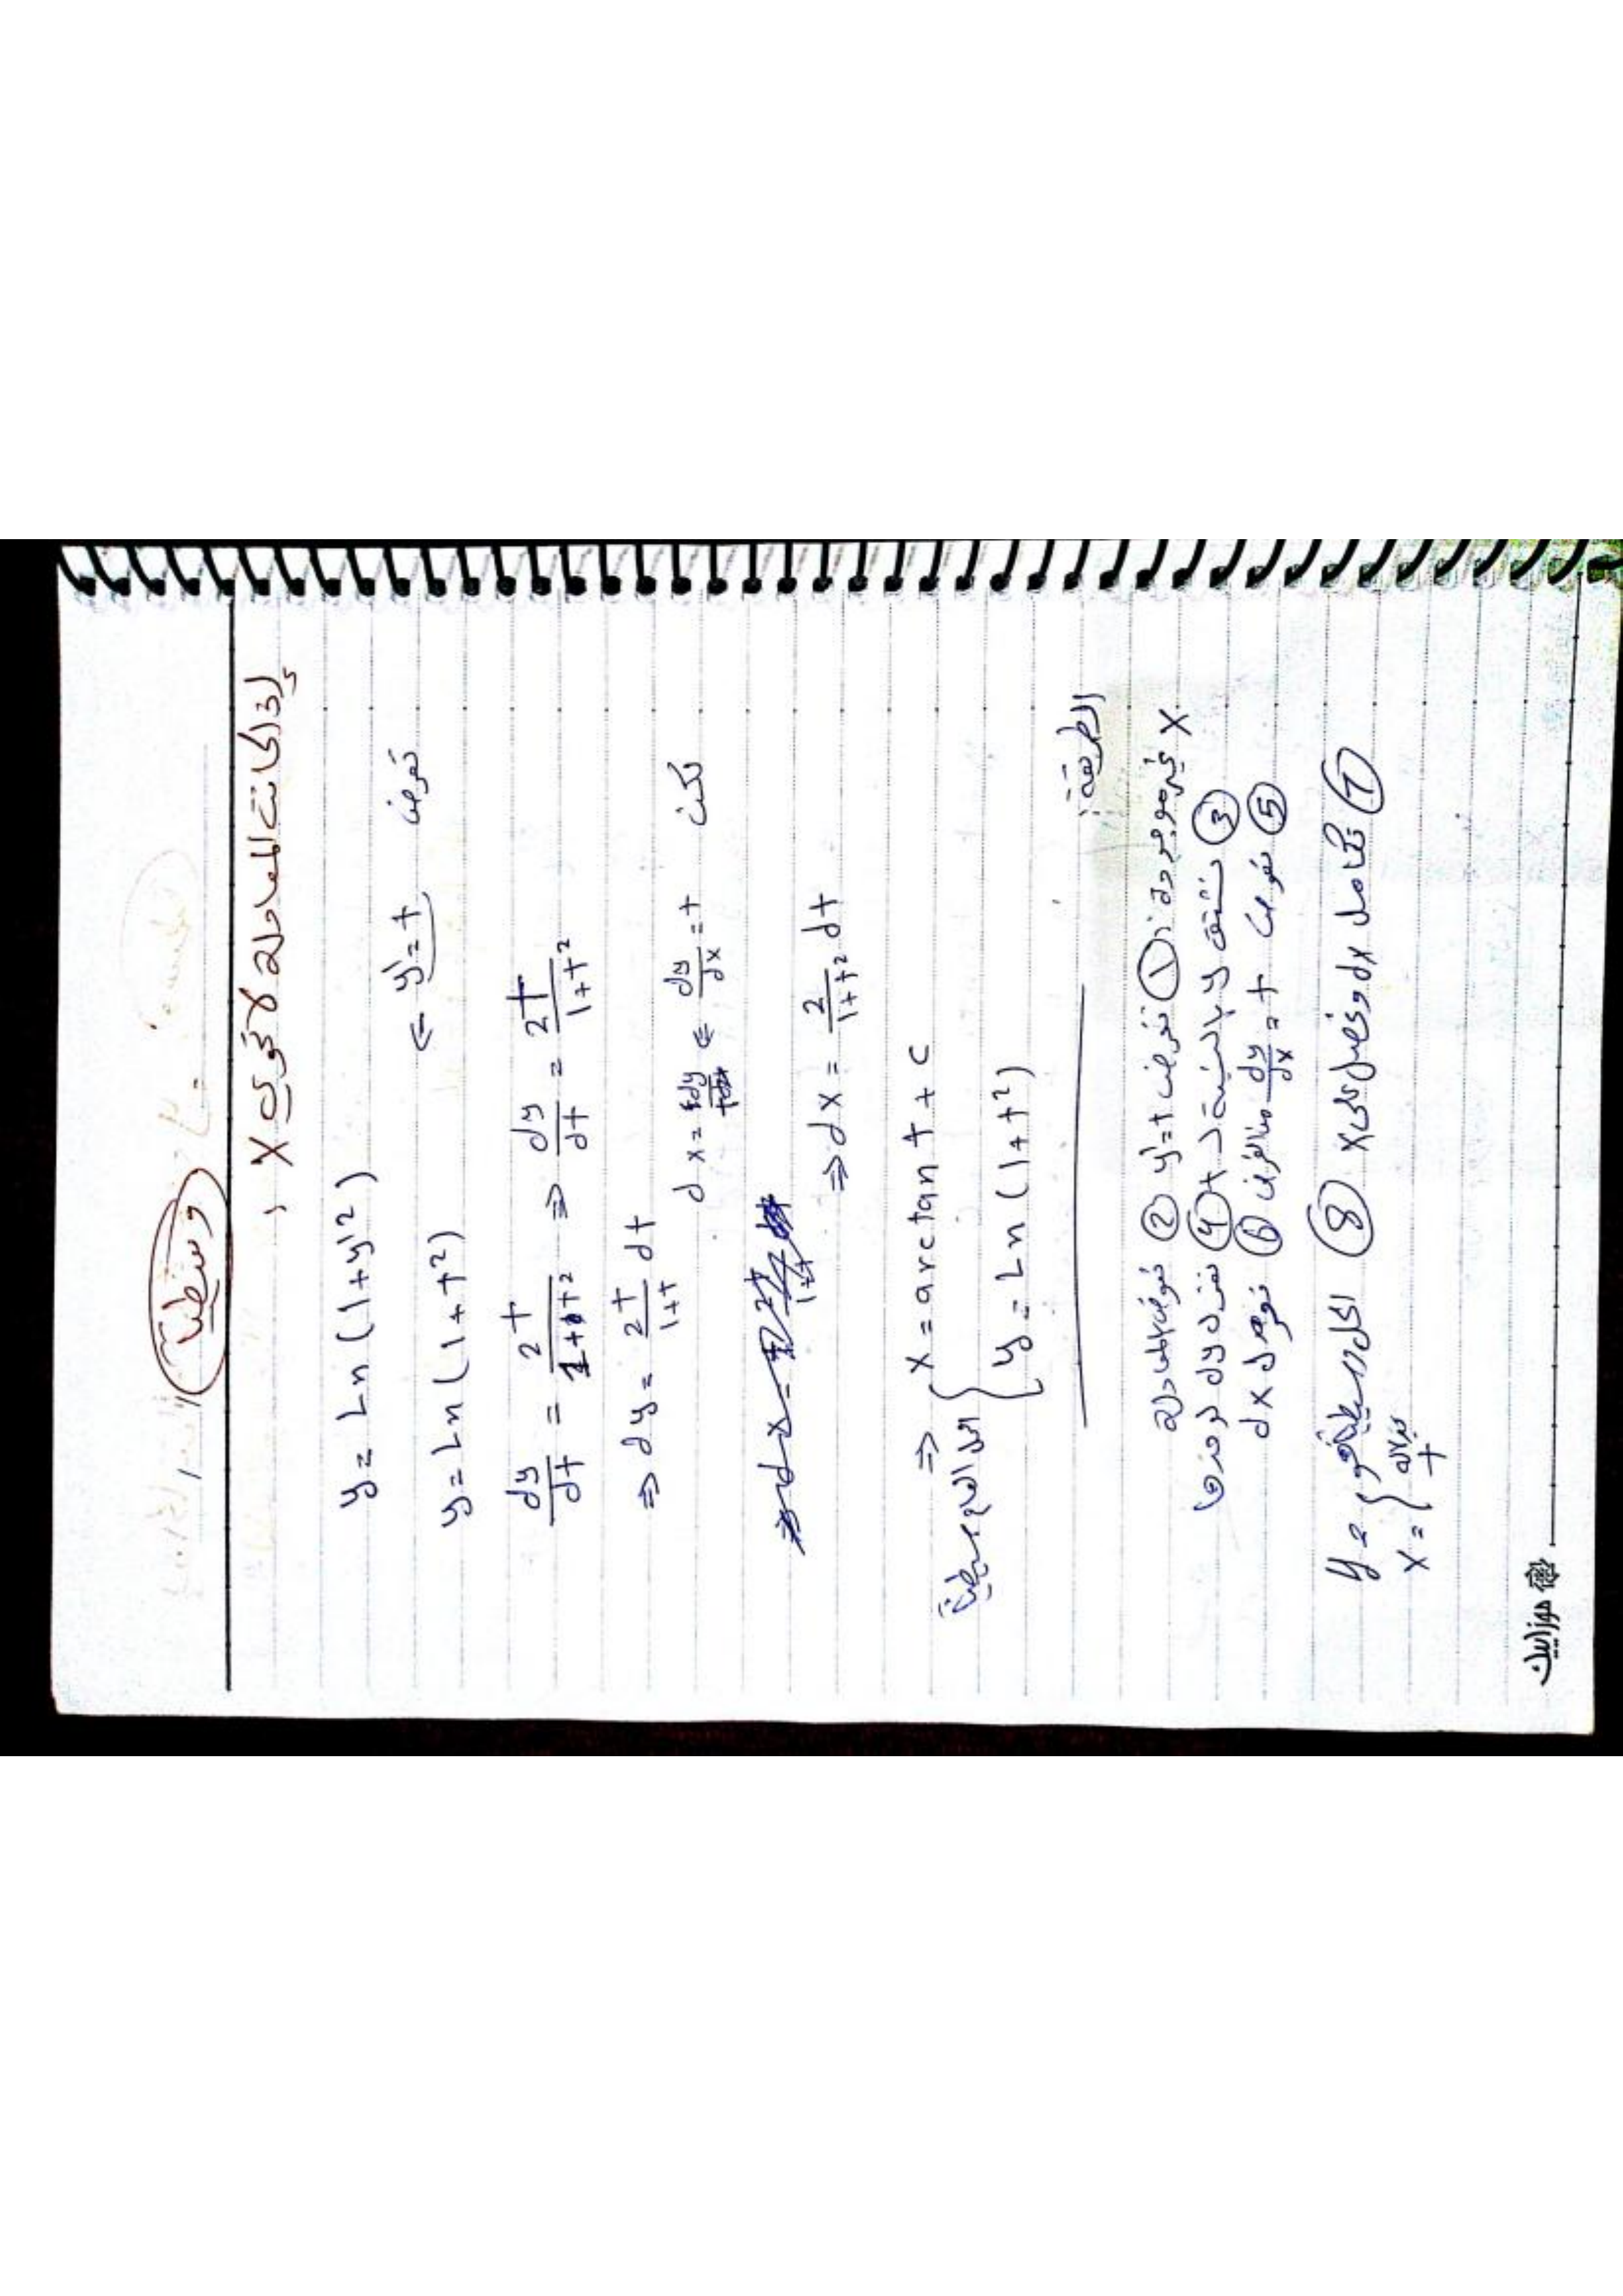 وسطياً
إذا كانت المعادلة لا تحوي x ،
y = Ln (1+y'2)
نفرض y'=t ⇐
y = Ln (1+t²)
dy/dt = 2t/1+t² ⇒ dy/dt = 2t/1+t²
⇒ dy = 2t/1+t dt
لكن dy/dx = t ⇐ dx = dy/t
⇒ dx = 2/1+t² dt
⇒ x = arctan t + c
الحل العام وسطياً
y = Ln (1+t²)
الطريقة:
x غير موجودة: ① نفرض y'=t ② نعوض بالمعادلة
③ نشتق y بالنسبة لـ t ④ نعزل dy لوحدها
⑤ نعوض dy/dx = t ⑥ نوجد dx
⑦ نكامل dx ونحصل على x ⑧ الحل وسطياً هو
y =
x =
بدلالة t
موزاييك